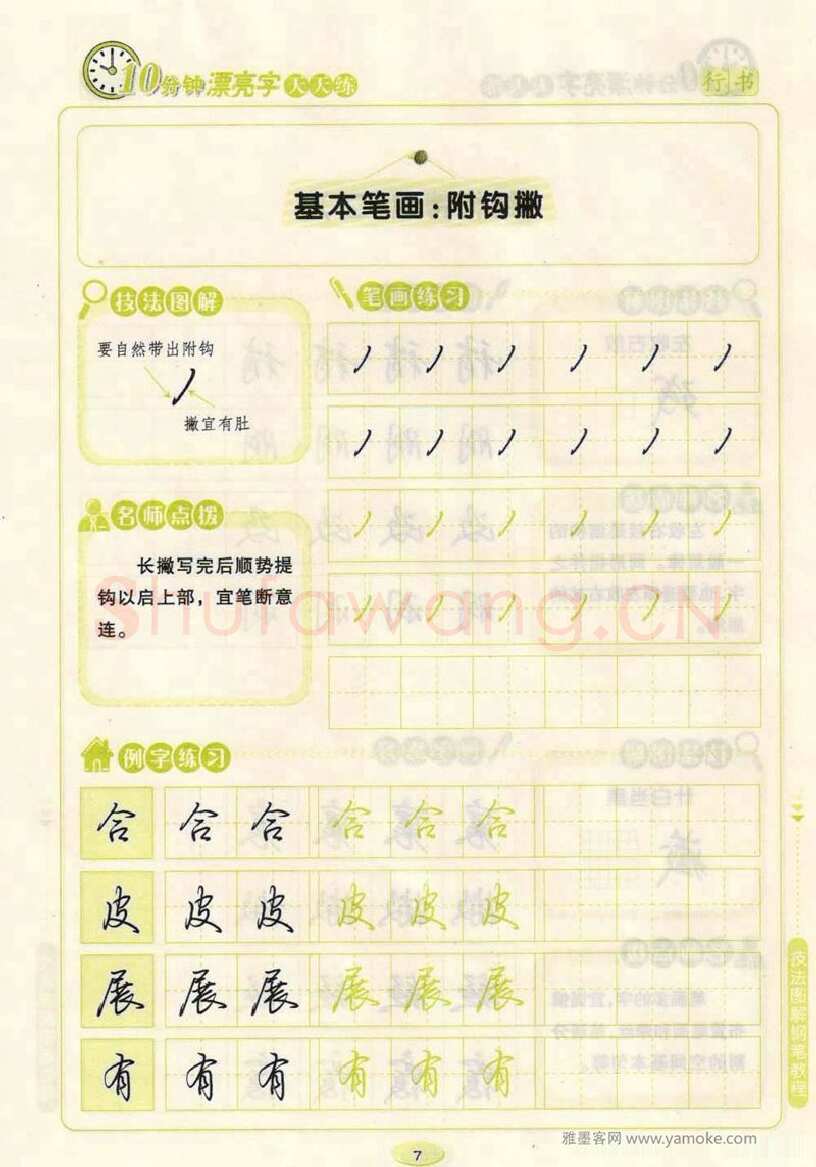 10分钟漂亮字天天练
行书
基本笔画：附钩撇
技法图解
要自然带出附钩
撇宜有肚
笔画练习
名师点拨
长撇写完后顺势提
钩以启上部，宜笔断意
连。
shufawang.CN
例字练习
合 合 合 合 合 合
皮 皮 皮 皮 皮 皮
展 展 展 展 展 展
有 有 有 有 有 有
技法图解钢笔教程
雅墨客网 www.yamoke.com
7